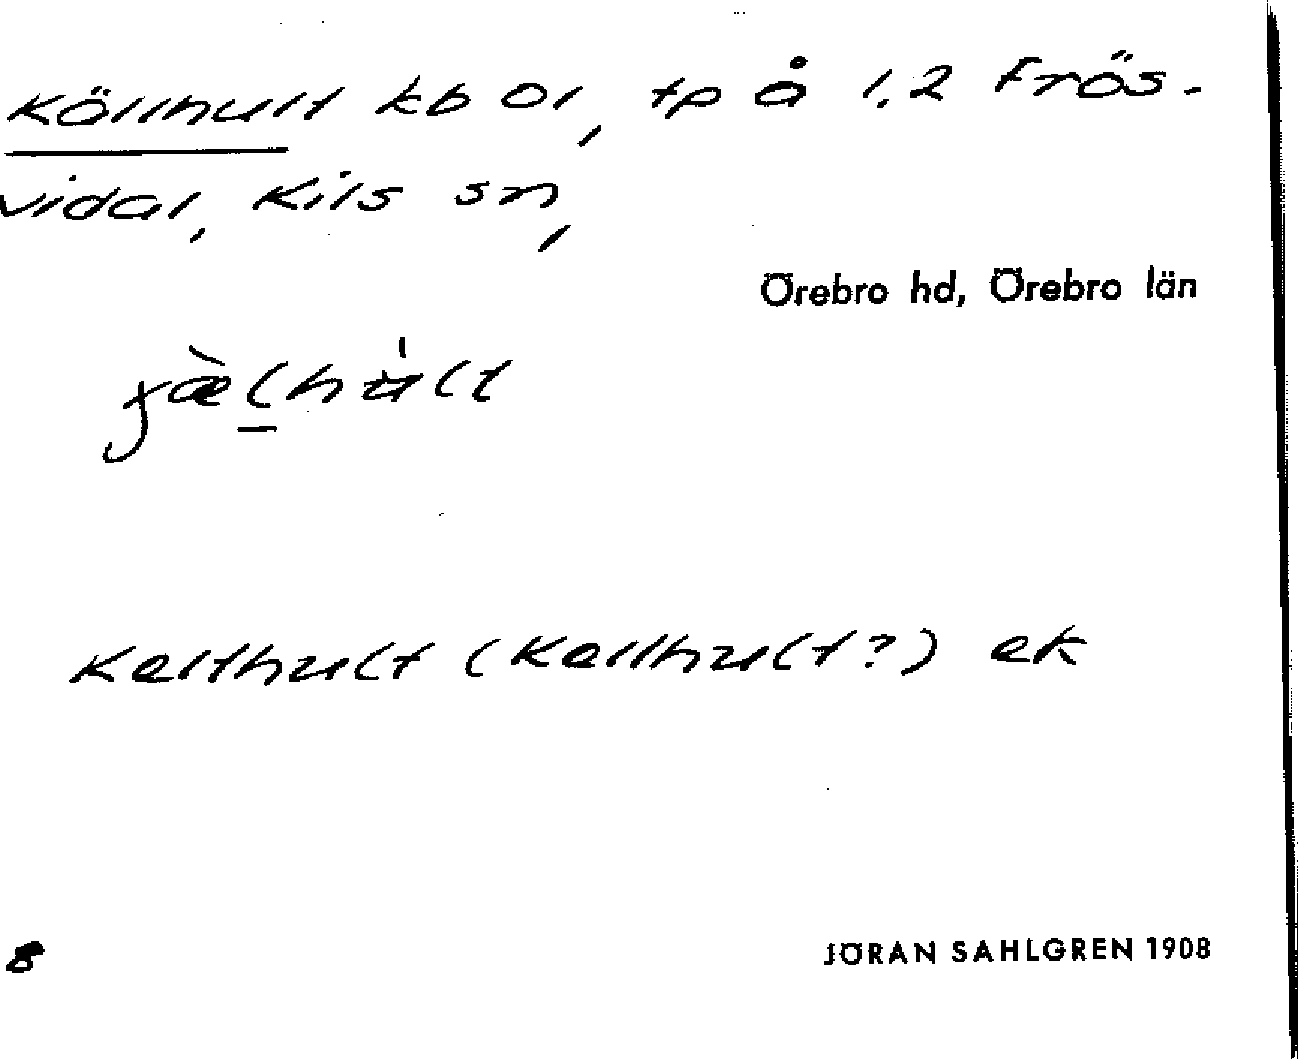 Köllhult kb 01, tp å 1.2 Frös-
vidal, Kils sn,
Örebro hd, Örebro län
Kelthult (Kellhult?) ek
8
JÖRAN SAHLGREN 1908